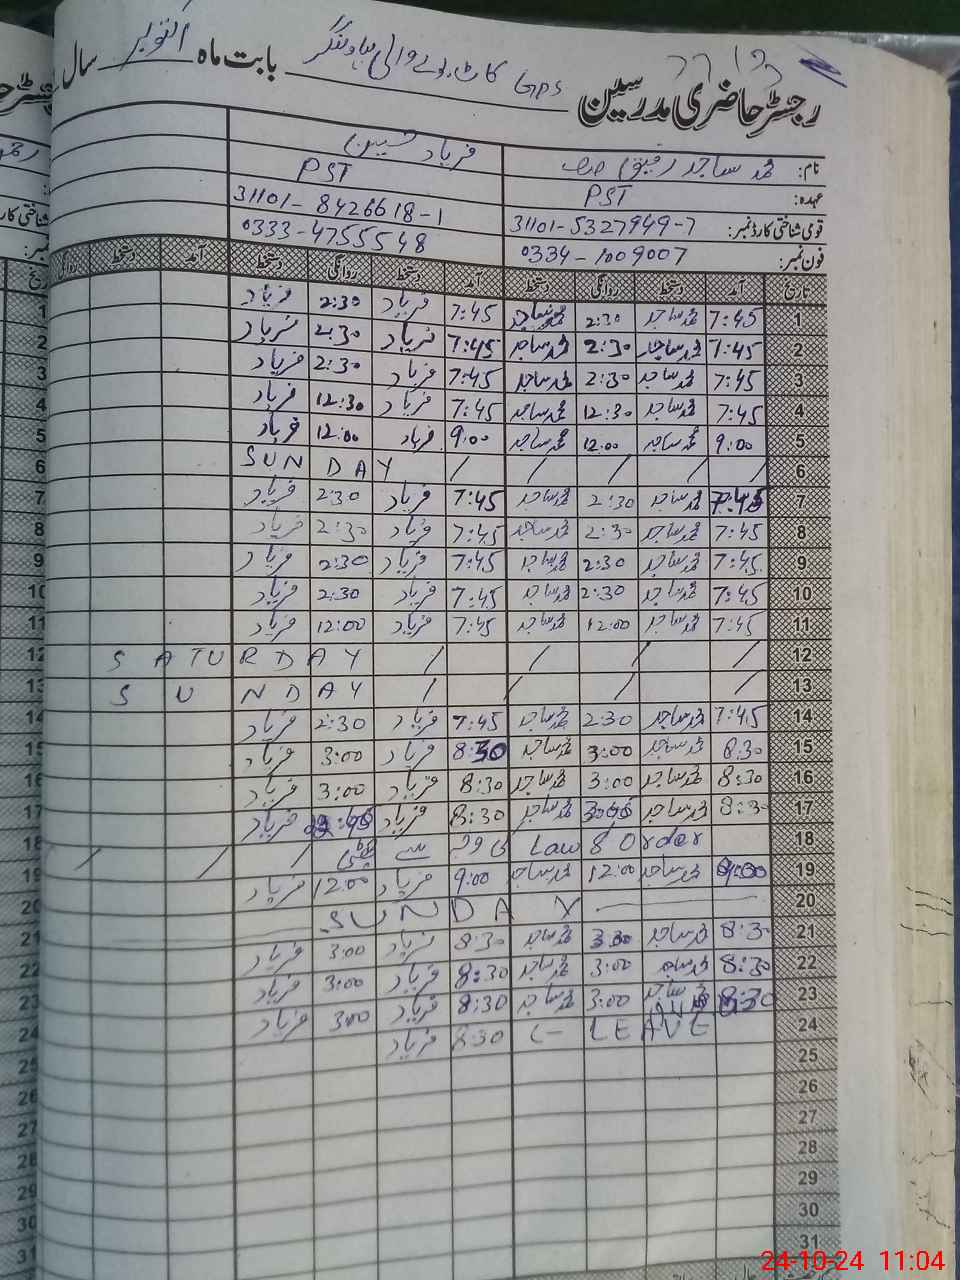 رجسٹر حاضری مدرسین GPS کاٹ بابت ماہ اکتوبر سال
نام: محمد ساجد رفیق فریاد حسین
عہدہ: PST PST
قومی شناختی کارڈ نمبر: 31101-5327949-7 31101-8426618-1
فون نمبر: 0334-1009007 0333-4755548
تاریخ آمد دستخط روانگی دستخط آمد دستخط روانگی دستخط آمد دستخط روانگی
1 7:45 محمد ساجد 2:30 7:45 فریاد 2:30 فریاد
2 7:45 محمد ساجد 2:30 محمد ساجد 7:45 فریاد 2:30 فریاد
3 7:45 محمد ساجد 2:30 محمد ساجد 7:45 فریاد 2:30 فریاد
4 7:45 محمد ساجد 12:30 محمد ساجد 7:45 فریاد 12:30 فریاد
5 9:00 محمد ساجد 12:00 محمد ساجد 9:00 فریاد 12:00 فریاد
6 / / / / / SUNDAY
7 7:45 محمد ساجد 2:30 محمد ساجد 7:45 فریاد 2:30 فریاد
8 7:45 محمد ساجد 2:30 محمد ساجد 7:45 فریاد 2:30 فریاد
9 7:45 محمد ساجد 2:30 محمد ساجد 7:45 فریاد 2:30 فریاد
10 7:45 محمد ساجد 2:30 محمد ساجد 7:45 فریاد 2:30 فریاد
11 7:45 محمد ساجد 12:00 محمد ساجد 7:45 فریاد 12:00 فریاد
12 / / / / SATURDAY
13 / / / / SUNDAY
14 7:45 محمد ساجد 2:30 محمد ساجد 7:45 فریاد 2:30 فریاد
15 8:30 محمد ساجد 3:00 محمد ساجد 8:30 فریاد 3:00 فریاد
16 8:30 محمد ساجد 3:00 محمد ساجد 8:30 فریاد 3:00 فریاد
17 8:30 محمد ساجد محمد ساجد 8:30 فریاد فریاد
18 Law & Order کی وجہ سے چھٹی / / /
19 9:00 محمد ساجد 12:00 محمد ساجد 9:00 فریاد 12:00 فریاد
20 SUNDAY
21 8:30 محمد ساجد محمد ساجد 8:30 فریاد 3:00 فریاد
22 8:30 محمد ساجد 3:00 محمد ساجد 8:30 فریاد 3:00 فریاد
23 8:30 محمد ساجد 3:00 محمد ساجد 8:30 فریاد 3:00 فریاد
24 LEAVE 8:30 فریاد
25
26
27
28
29
30
31
24-10-24 11:04